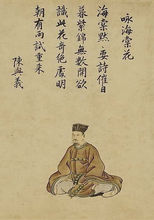 詠海棠花
海棠默々要詩催日
暮紫錦無數開欲
識此花奇絕處明
朝有雨試重來
陳與義